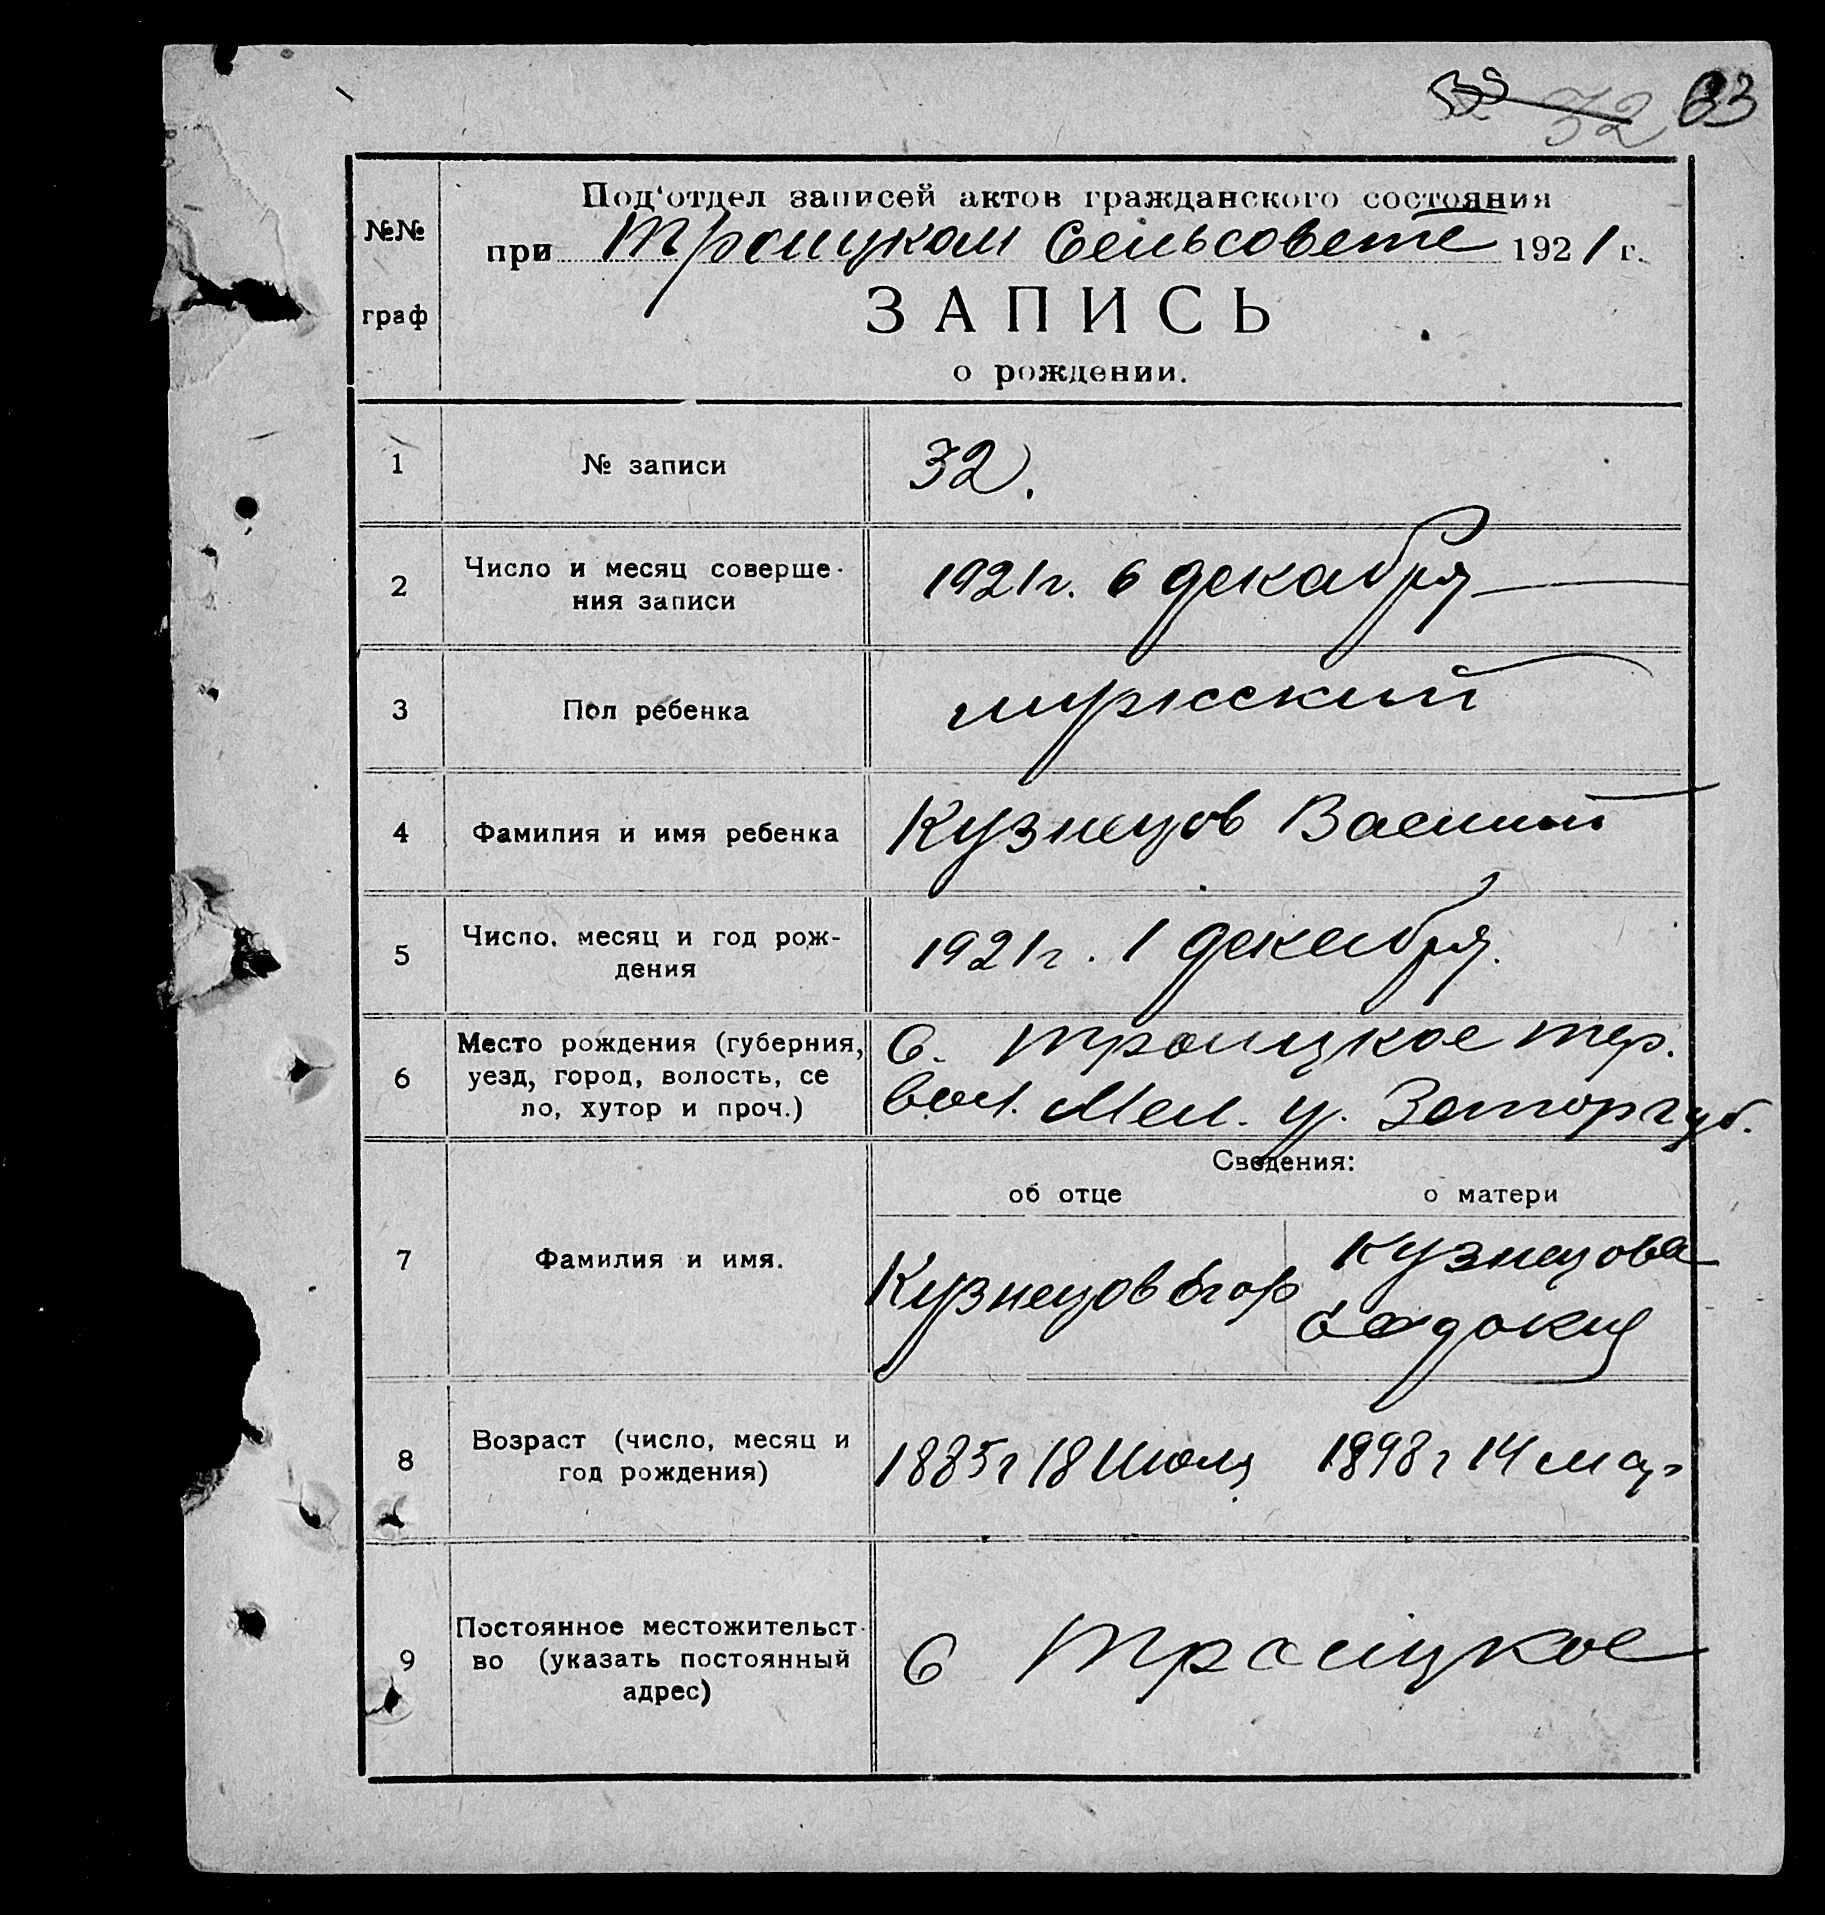 32 33
Под'отдел записей актов гражданского состояния
№№
при Троицком Сельсовете 1921 г.
граф
ЗАПИСЬ
о рождении.
1 № записи 32.
2 Число и месяц соверше-
ния записи 1921 г. 6 декабря
3 Пол ребенка мужский
4 Фамилия и имя ребенка Кузнецов Василий
5 Число, месяц и год рож-
дения 1921 г. 1 декабря.
6 Место рождения (губерния,
уезд, город, волость, се
ло, хутор и проч.)
С. Троицкое тер.
вол. Мел. у. Запор губ.
Сведения:
об отце о матери
7 Фамилия и имя.
Кузнецов Егор
Кузнецова
Евдокия
8 Возраст (число, месяц и
год рождения)
1885 г 18 Июля 1898 г 14 мар
9 Постоянное местожительст-
во (указать постоянный
адрес)
С Троицкое